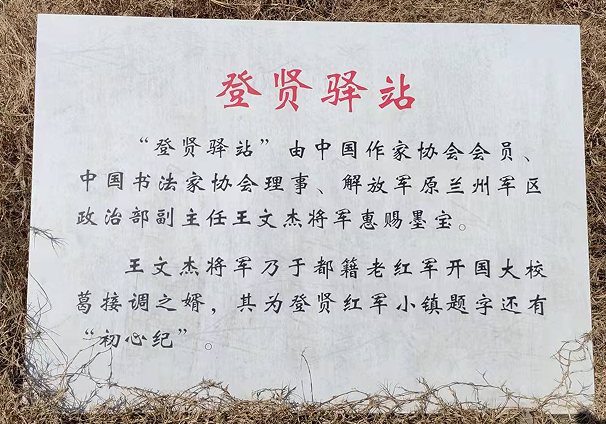 登贤驿站
“登贤驿站”由中国作家协会会员、
中国书法家协会理事、解放军原兰州军区
政治部副主任王文杰将军惠赐墨宝。
王文杰将军乃于都籍老红军开国大校
葛接调之婿，其为登贤红军小镇题字还有
“初心纪”。